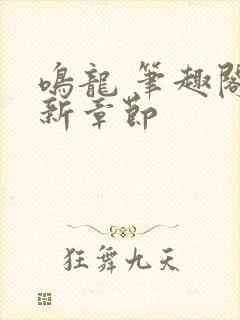 鳴龍 筆趣閣
新章節
狂舞九天